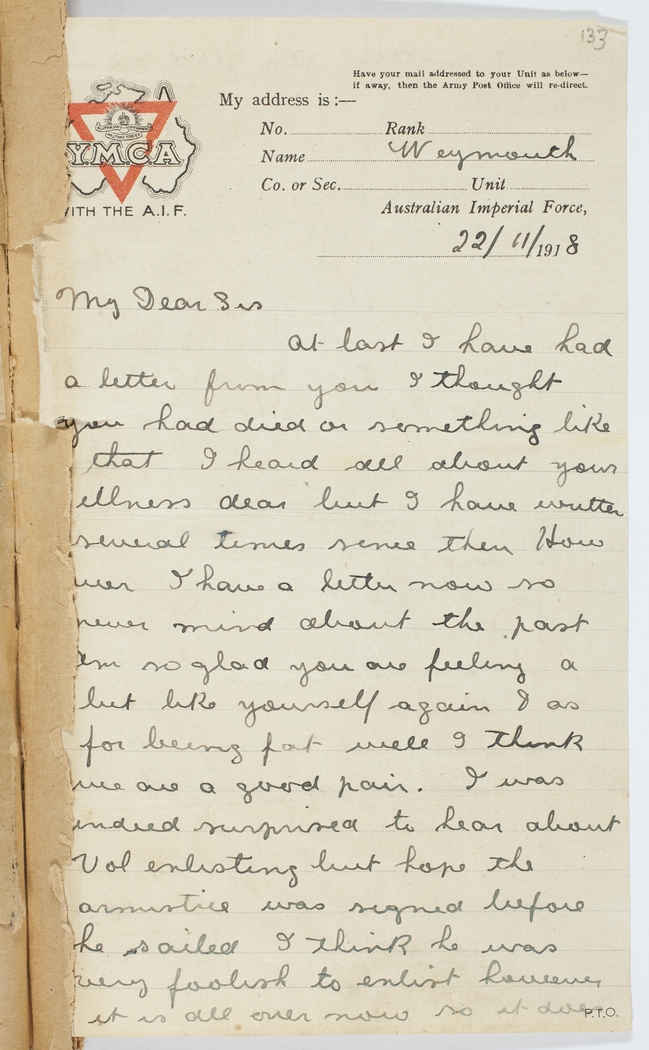 133
Have your mail addressed to your Unit as below—
if away, then the Army Post Office will re-direct.
My address is :—
No. Rank
Name Weymouth
Co. or Sec. Unit
Australian Imperial Force,
22/11/1918
Y.M.C.A
WITH THE A.I.F.
My Dear Sis
At last I have had
a letter from you I thought
you had died or something like
that I heard all about your
illness dear but I have written
several times since then How
ever I have a letter now so
never mind about the past
Im so glad you are feeling a
bit like yourself again & as
for being fat well I think
we are a good pair. I was
indeed surprised to hear about
Vol enlisting but hope the
armistice was signed before
he sailed I think he was
very foolish to enlist however
it is all over now so it does
P.T.O.